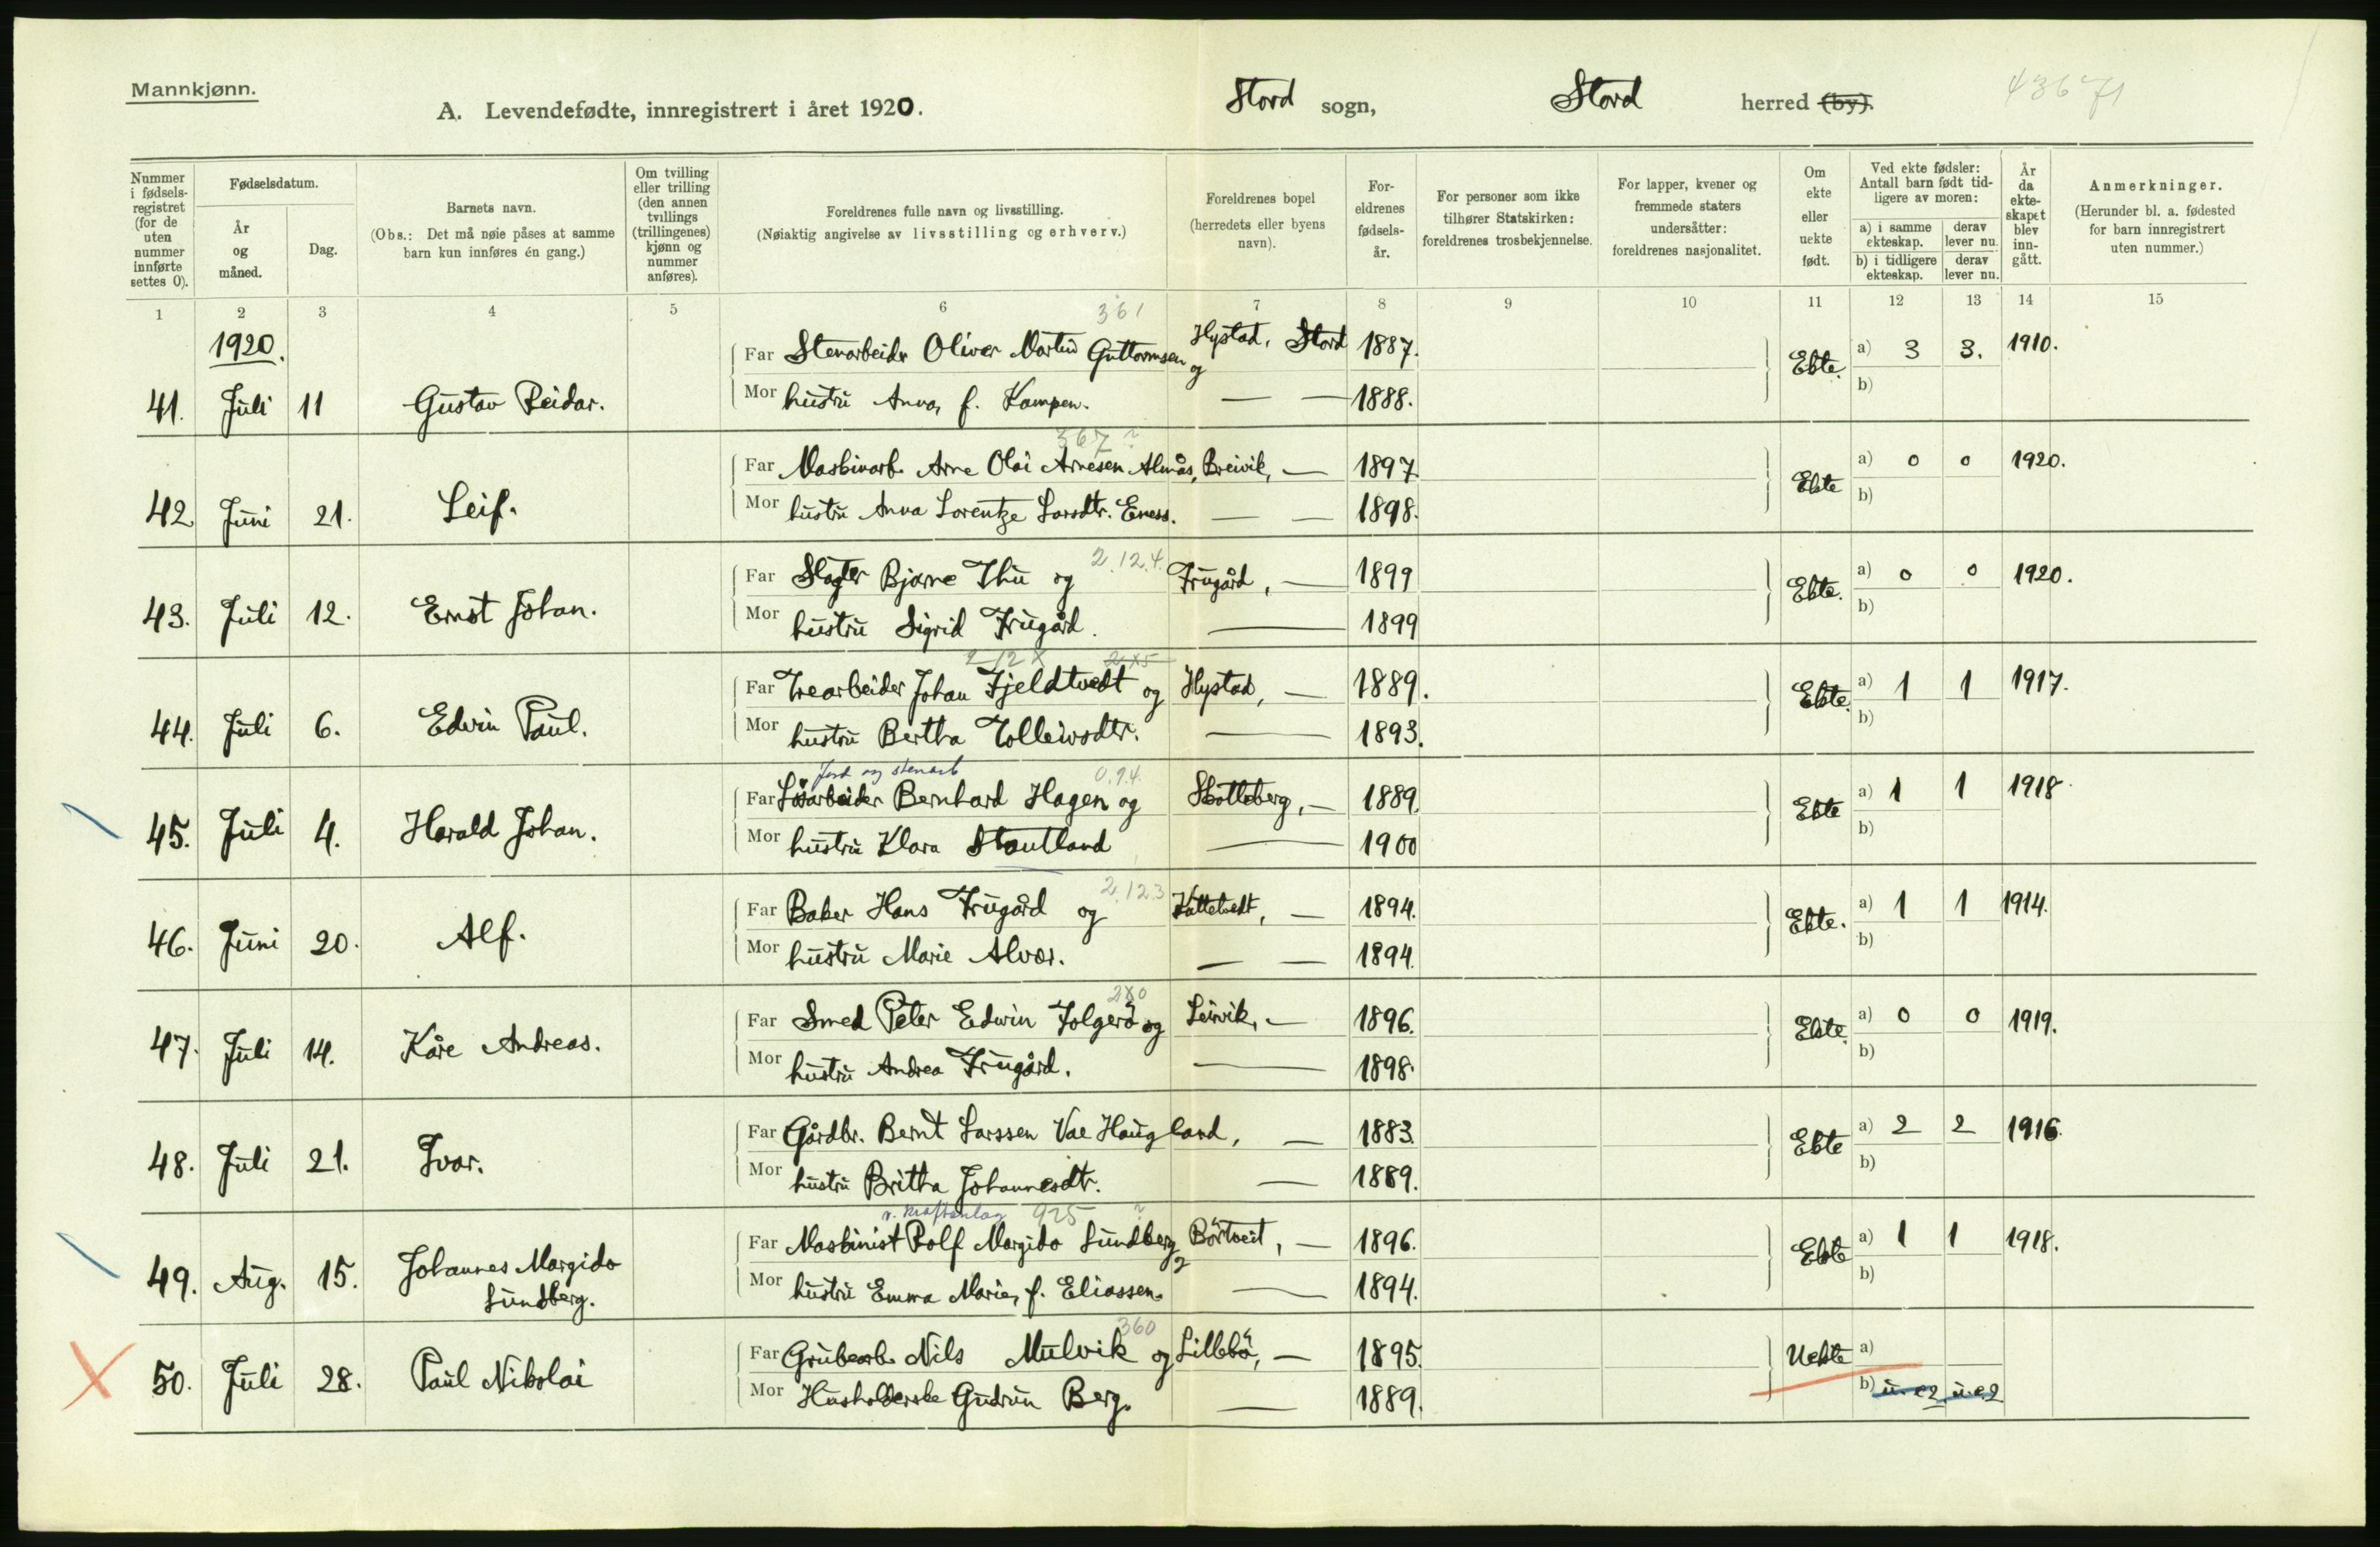 Mannkjønn.
A. Levendefødte, innregistrert i året 1920. Stord sogn, Stord herred (by).
43671
Nummer i fødsels-registret (for de uten nummer innførte settes 0).
Fødselsdatum.
År og måned.
Dag.
Barnets navn.
(Obs.: Det må nøie påses at samme barn kun innføres én gang.)
Om tvilling eller trilling (den annen tvillings (trillingenes) kjønn og nummer anføres).
Foreldrenes fulle navn og livsstilling.
(Nøiaktig angivelse av livsstilling og erhverv.)
Foreldrenes bopel (herredets eller byens navn).
For-eldrenes fødsels-år.
For personer som ikke tilhører Statskirken: foreldrenes trosbekjennelse.
For lapper, kvener og fremmede staters undersåtter: foreldrenes nasjonalitet.
Om ekte eller uekte født.
Ved ekte fødsler: Antall barn født tid-ligere av moren:
a) i samme ekteskap.
derav lever nu.
b) i tidligere ekteskap.
derav lever nu.
År da ekte-skapet blev inn-gått.
Anmerkninger.
(Herunder bl. a. fødested for barn innregistrert uten nummer.)
1 2 3 4 5 6 7 8 9 10 11 12 13 14 15
1920.
361
Far Stenarbeidr Oliver Martin Guttormsen og Hystad, Stord 1887. Ekte. a) 3 3. 1910.
41. Juli 11 Gustav Reidar.
Mor hustru Anna, f. Kampen. — — 1888. b)
367 ?
Far Maskinarb. Arne Olai Arnesen Almås, Breivik, — 1897 Ekte a) 0 0 1920.
42 Juni 21. Leif.
Mor hustru Anna Lorentze Larsdtr. Eness. — — 1898. b)
2.12.4.
Far Slagter Bjarne Thu og Frugård, — 1899 Ekte. a) 0 0 1920.
43. Juli 12. Ernst Johan.
Mor hustru Sigrid Frugård. — 1899 b)
2 12 X 2X5
Far Trearbeider Johan Fjeldtvedt og Hystad, — 1889. Ekte. a) 1 1 1917.
44. Juli 6. Edvin Paul.
Mor hustru Bertha Tolleivsdtr. — 1893. b)
Jord og stenarb 0.9.4.
Far Løsarbeider Bernhard Hagen og Skotteberg, — 1889. Ekte a) 1 1 1918
45. Juli 4. Harald Johan.
Mor hustru Klara Stautland — 1900 b)
2.12.3
Far Baker Hans Frugård og Kattetvedt, — 1894. Ekte. a) 1 1 1914.
46. Juni 20. Alf.
Mor hustru Marie Alvær. — — 1894. b)
2X0
Far Smed Peter Edwin Folgerö og Leirvik, — 1896. Ekte. a) 0 0 1919.
47. Juli 14. Kåre Andreas.
Mor hustru Andrea Frugård. — 1898. b)
Far Gårdbr. Bernt Larssen Vae Haugland, — 1883. Ekte a) 2 2 1916.
48. Juli 21. Ivar.
Mor hustru Britha Johannesdtr. — 1889. b)
v. kraftanlæg 925 ?
Far Maskinist Rolf Margido Sundberg Börtveit, — 1896. Ekte a) 1 1 1918.
49. Aug. 15. Johannes Margido Sundberg.
Mor hustru Emma Marie, f. Eliassen. — 1894. b)
360
Far Grubearb. Nils Mulvik og Lillebö, — 1895. Uekte a)
50. Juli 28. Paul Nikolai
Mor Husholderske Gudrun Berg. — 1889. b) u. e 2 u. e. 2